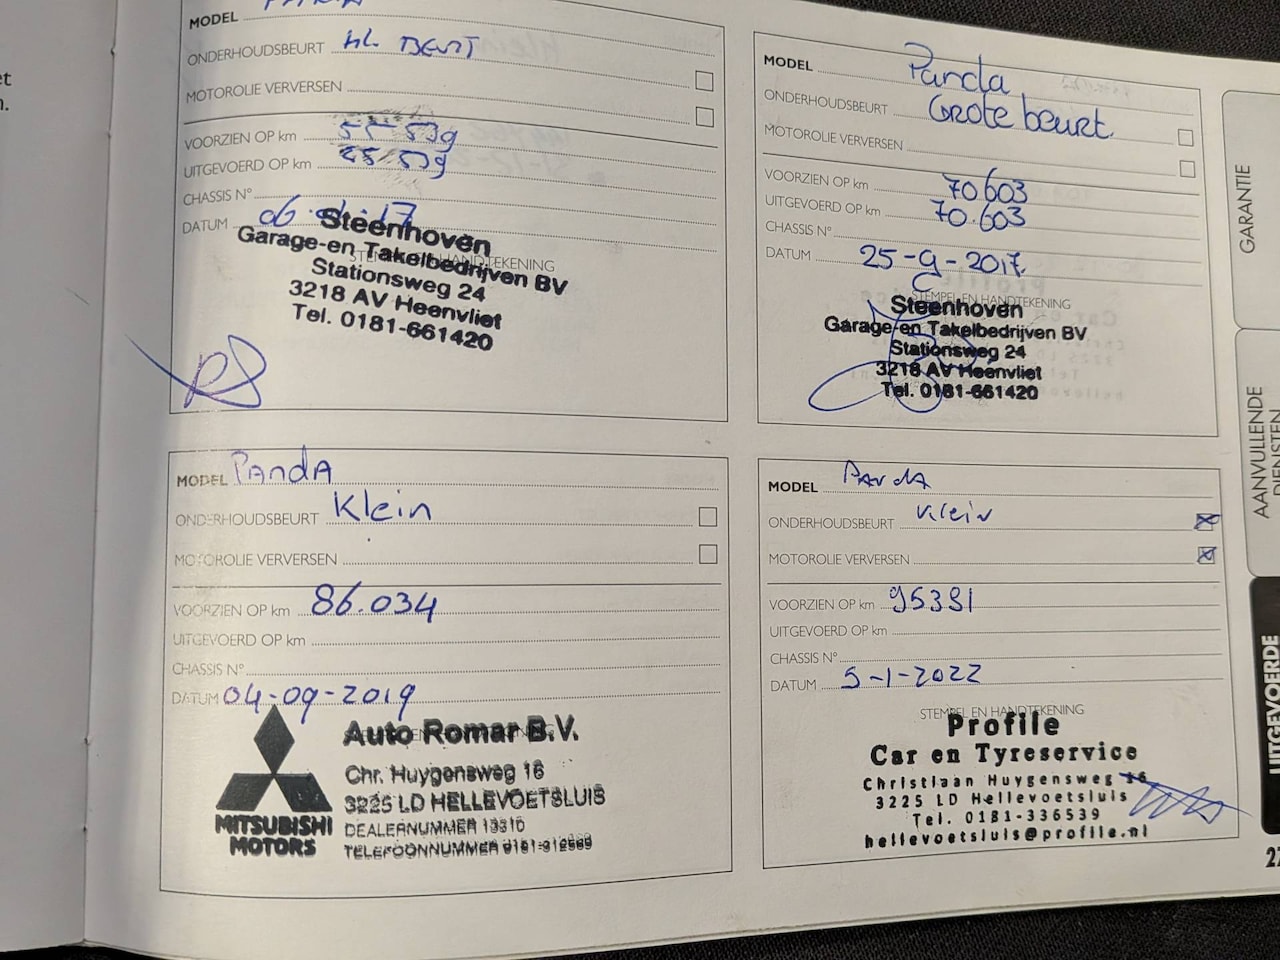 et
n.
MODEL
ONDERHOUDSBEURT kl. BEURT
MOTOROLIE VERVERSEN
VOORZIEN OP km
UITGEVOERD OP km
CHASSIS N°
DATUM
STEMPEL EN HANDTEKENING
Steenhoven
Garage-en Takelbedrijven BV
Stationsweg 24
3218 AV Heenvliet
Tel. 0181-661420
MODEL Panda
ONDERHOUDSBEURT Grote beurt
MOTOROLIE VERVERSEN
VOORZIEN OP km 70.603
UITGEVOERD OP km 70.603
CHASSIS N°
DATUM 25-9-2017
STEMPEL EN HANDTEKENING
Steenhoven
Garage-en Takelbedrijven BV
Stationsweg 24
3218 AV Heenvliet
Tel. 0181-661420
MODEL PANdA
ONDERHOUDSBEURT Klein
MOTOROLIE VERVERSEN
VOORZIEN OP km 86.034
UITGEVOERD OP km
CHASSIS N°
DATUM 04-09-2019
MITSUBISHI
MOTORS
Auto Romar B.V.
Chr. Huygensweg 16
3225 LD HELLEVOETSLUIS
DEALERNUMMER 13310
TELEFOONNUMMER
MODEL PANdA
ONDERHOUDSBEURT Klein
MOTOROLIE VERVERSEN
VOORZIEN OP km 95381
UITGEVOERD OP km
CHASSIS N°
DATUM 5-1-2022
STEMPEL EN HANDTEKENING
Profile
Car en Tyreservice
Christiaan Huygensweg 16
3225 LD Hellevoetsluis
Tel. 0181-336539
hellevoetsluis@profile.nl
GARANTIE
AANVULLENDE
DIENSTEN
UITGEVOERDE